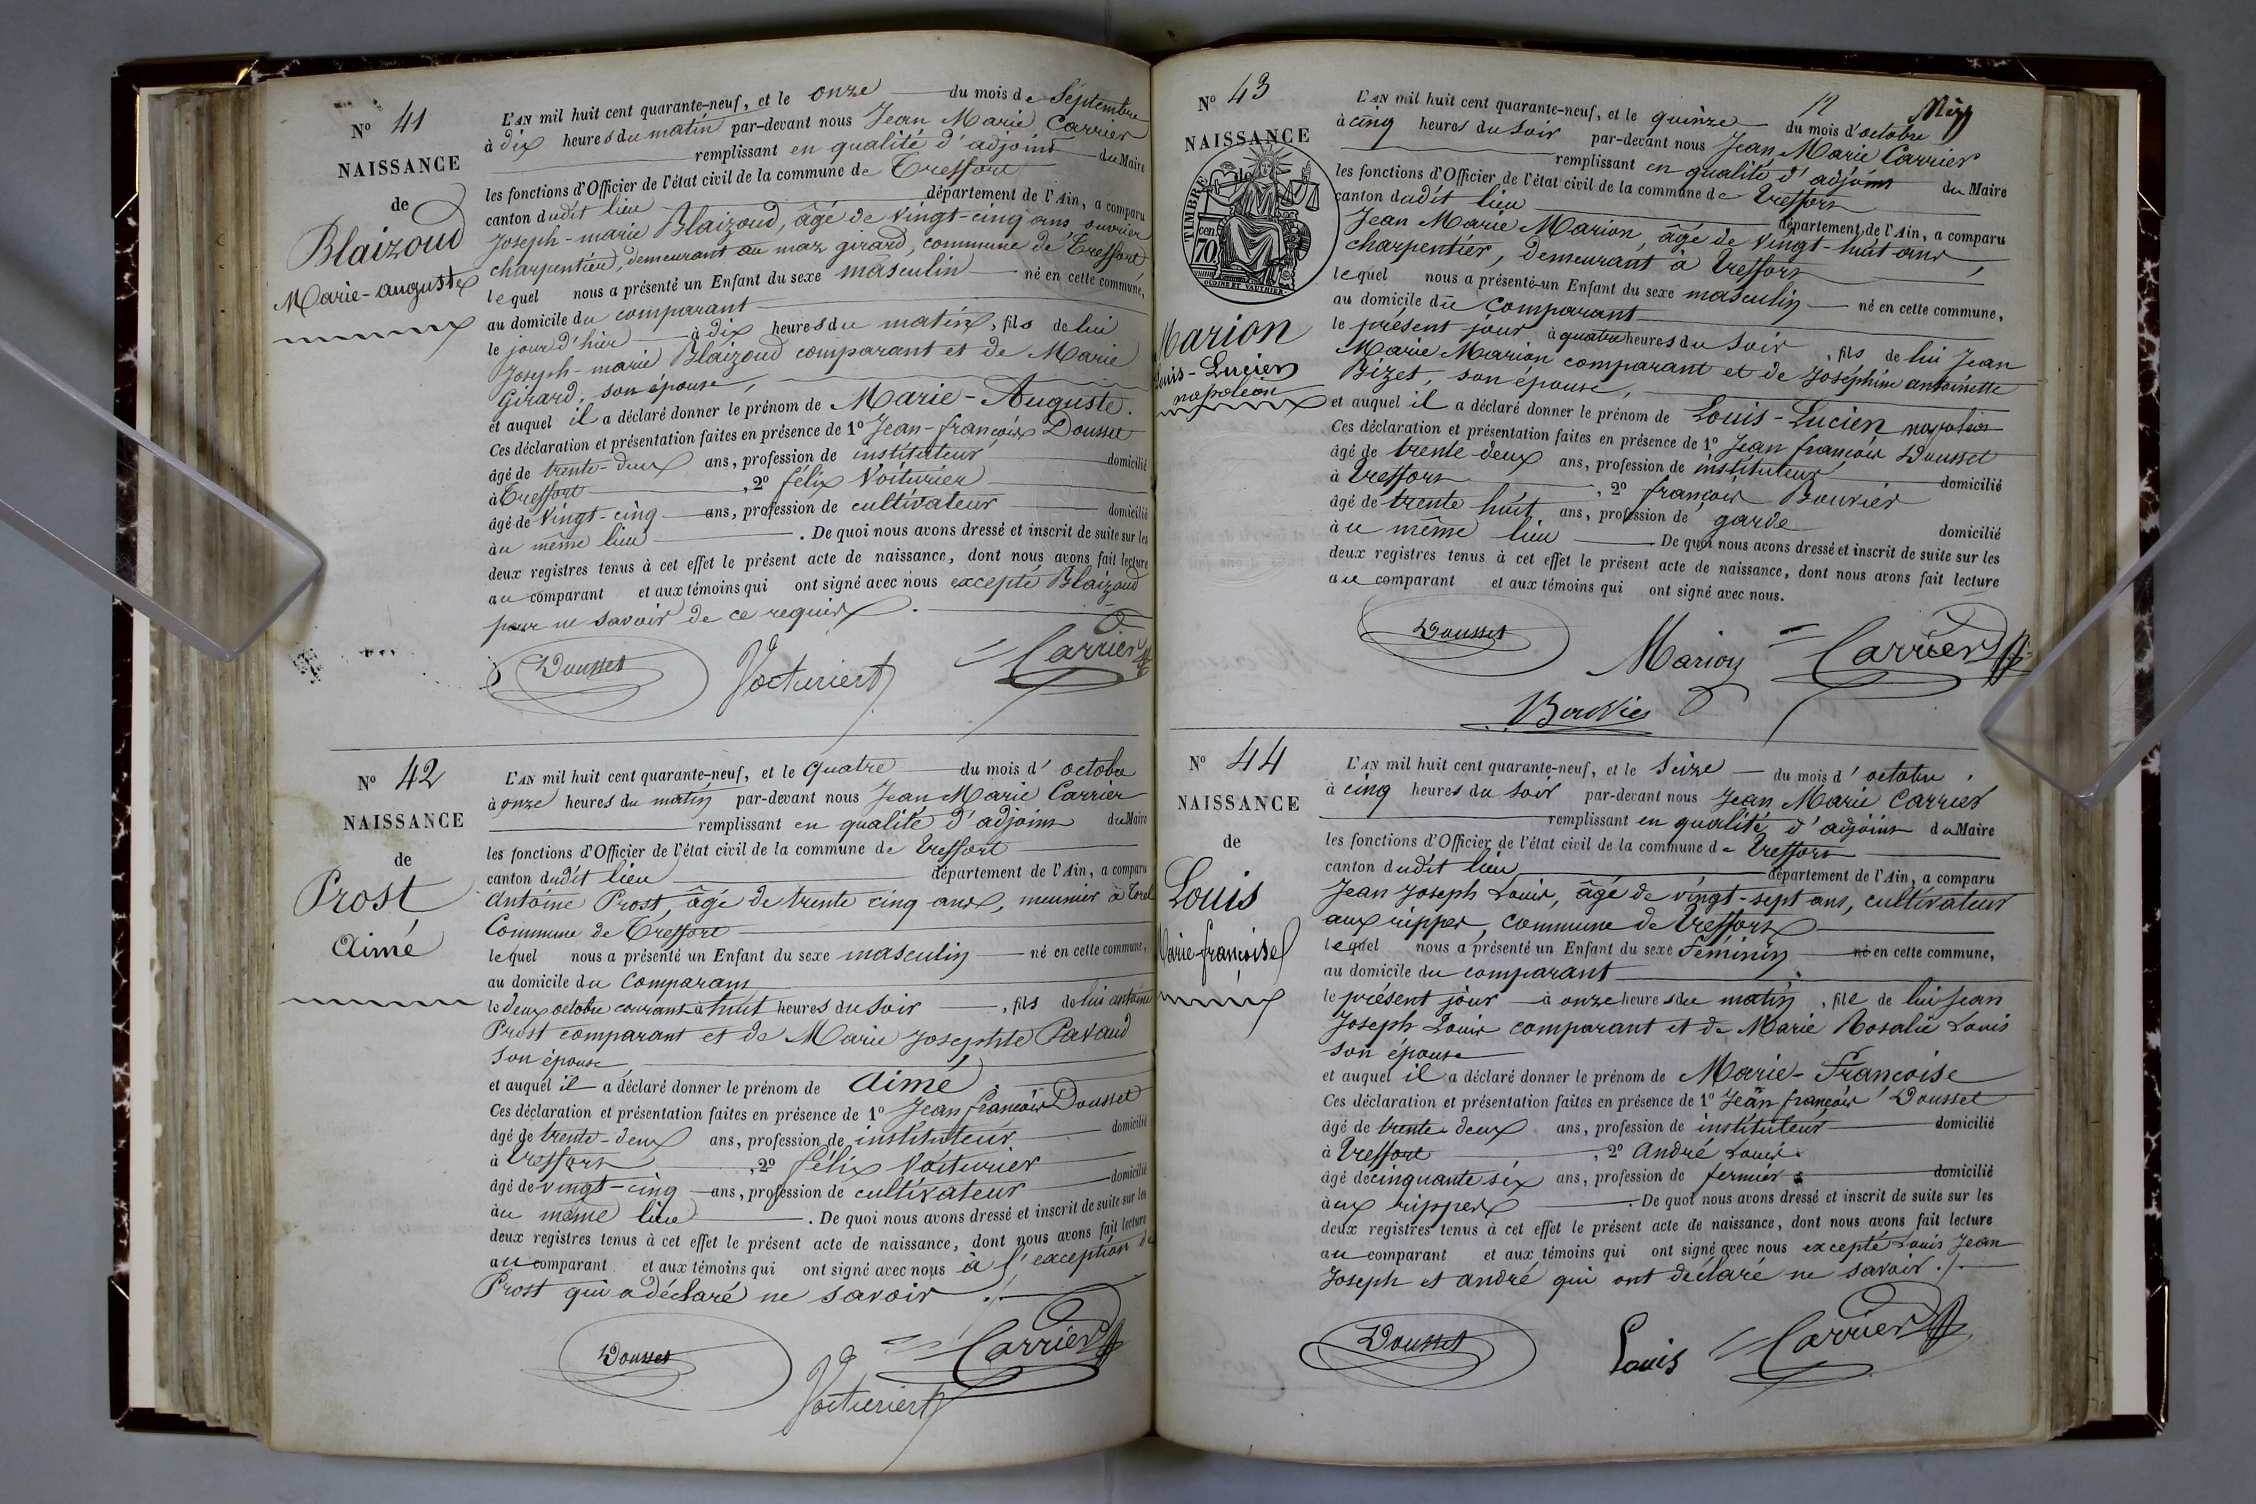 N° 41
NAISSANCE
de
Blaizoud
Marie-auguste
L'AN mil huit cent quarante-neuf, et le onze du mois de Septembre
à dix heures du matin par-devant nous Jean Marie Carrier
remplissant en qualité d'adjoint du Maire
les fonctions d'Officier de l'état civil de la commune de Treffort
canton dudit lieu département de l'Ain, a comparu
Joseph-marie Blaizoud, âgé de vingt-cinq ans, ouvrier
charpentier, demeurant au maz girard, commune de Treffort
lequel nous a présenté un Enfant du sexe masculin né en cette commune,
au domicile du comparant
le jour d'hier à dix heures du matin, fils de lui
Joseph-marie Blaizoud comparant et de Marie
Girard, son épouse,
et auquel il a déclaré donner le prénom de Marie-Auguste.
Ces déclaration et présentation faites en présence de 1° Jean-françois Dousset
âgé de trente-deux ans, profession de instituteur domicilié
à Treffort, 2° félix Voiturier
âgé de vingt-cinq ans, profession de cultivateur domicilié
au même lieu. De quoi nous avons dressé et inscrit de suite sur les
deux registres tenus à cet effet le présent acte de naissance, dont nous avons fait lecture
au comparant et aux témoins qui ont signé avec nous excepté Blaizoud
pour ne savoir de ce requis.
Dousset Voituriert Carrier
N° 42
NAISSANCE
de
Prost
Aimé
L'AN mil huit cent quarante-neuf, et le quatre du mois d'octobre
à onze heures du matin par-devant nous Jean Marie Carrier
remplissant en qualité d'adjoint du Maire
les fonctions d'Officier de l'état civil de la commune de Treffort
canton dudit lieu département de l'Ain, a comparu
Antoine Prost, âgé de trente cinq ans, meunier à
Commune de Treffort
lequel nous a présenté un Enfant du sexe masculin né en cette commune,
au domicile du comparant
le deux octobre courant à huit heures du soir, fils de lui antoine
Prost comparant et de Marie Josephte Pavaud
son épouse
et auquel il a déclaré donner le prénom de Aimé
Ces déclaration et présentation faites en présence de 1° Jean françois Dousset
âgé de trente-deux ans, profession de instituteur domicilié
à Treffort, 2° félix Voiturier
âgé de vingt-cinq ans, profession de cultivateur domicilié
au même lieu. De quoi nous avons dressé et inscrit de suite sur les
deux registres tenus à cet effet le présent acte de naissance, dont nous avons fait lecture
au comparant et aux témoins qui ont signé avec nous à l'exception de
Prost qui a déclaré ne savoir ./.
Dousset Voituriert Carrier
N° 43
NAISSANCE
TIMBRE
70 cen
OUDINÉ ET VAUTHIER
Marion
Louis-Lucien
napoléon
L'AN mil huit cent quarante-neuf, et le quinze du mois d'octobre
à cinq heures du soir par-devant nous Jean Marie Carrier
remplissant en qualité d'adjoint du Maire
les fonctions d'Officier de l'état civil de la commune de Treffort
canton dudit lieu département de l'Ain, a comparu
Jean Marie Marion, âgé de vingt-huit ans,
charpentier, demeurant à Treffort
lequel nous a présenté un Enfant du sexe masculin né en cette commune,
au domicile du comparant
le présent jour à quatre heures du soir, fils de lui Jean
Marie Marion comparant et de Joséphine antoinette
Bizet, son épouse,
et auquel il a déclaré donner le prénom de Louis-Lucien napoléon
Ces déclaration et présentation faites en présence de 1° Jean françois Dousset
âgé de trente-deux ans, profession de instituteur domicilié
à Treffort, 2° françois Bouvier
âgé de trente huit ans, profession de garde domicilié
au même lieu De quoi nous avons dressé et inscrit de suite sur les
deux registres tenus à cet effet le présent acte de naissance, dont nous avons fait lecture
au comparant et aux témoins qui ont signé avec nous.
Dousset Marion Carrier
Bouvier
N° 44
NAISSANCE
de
Louis
Marie françoise
L'AN mil huit cent quarante-neuf, et le seize du mois d'octobre
à cinq heures du soir par-devant nous Jean Marie Carrier
remplissant en qualité d'adjoint du Maire
les fonctions d'Officier de l'état civil de la commune de Treffort
canton dudit lieu département de l'Ain, a comparu
Jean Joseph Louis, âgé de vingt-sept ans, cultivateur
aux rippes, commune de Treffort
lequel nous a présenté un Enfant du sexe Féminin né en cette commune,
au domicile du comparant
le présent jour à onze heures du matin, file de lui Jean
Joseph Louis comparant et de Marie Rosalie Louis
son épouse
et auquel il a déclaré donner le prénom de Marie-Françoise
Ces déclaration et présentation faites en présence de 1° Jean françois Dousset
âgé de trente deux ans, profession de instituteur domicilié
à Treffort, 2° André Louis
âgé de cinquante six ans, profession de fermier domicilié
aux rippes. De quoi nous avons dressé et inscrit de suite sur les
deux registres tenus à cet effet le présent acte de naissance, dont nous avons fait lecture
au comparant et aux témoins qui ont signé avec nous excepté Louis Jean
Joseph et andré qui ont déclaré ne savoir ./.
Dousset Louis Carrier